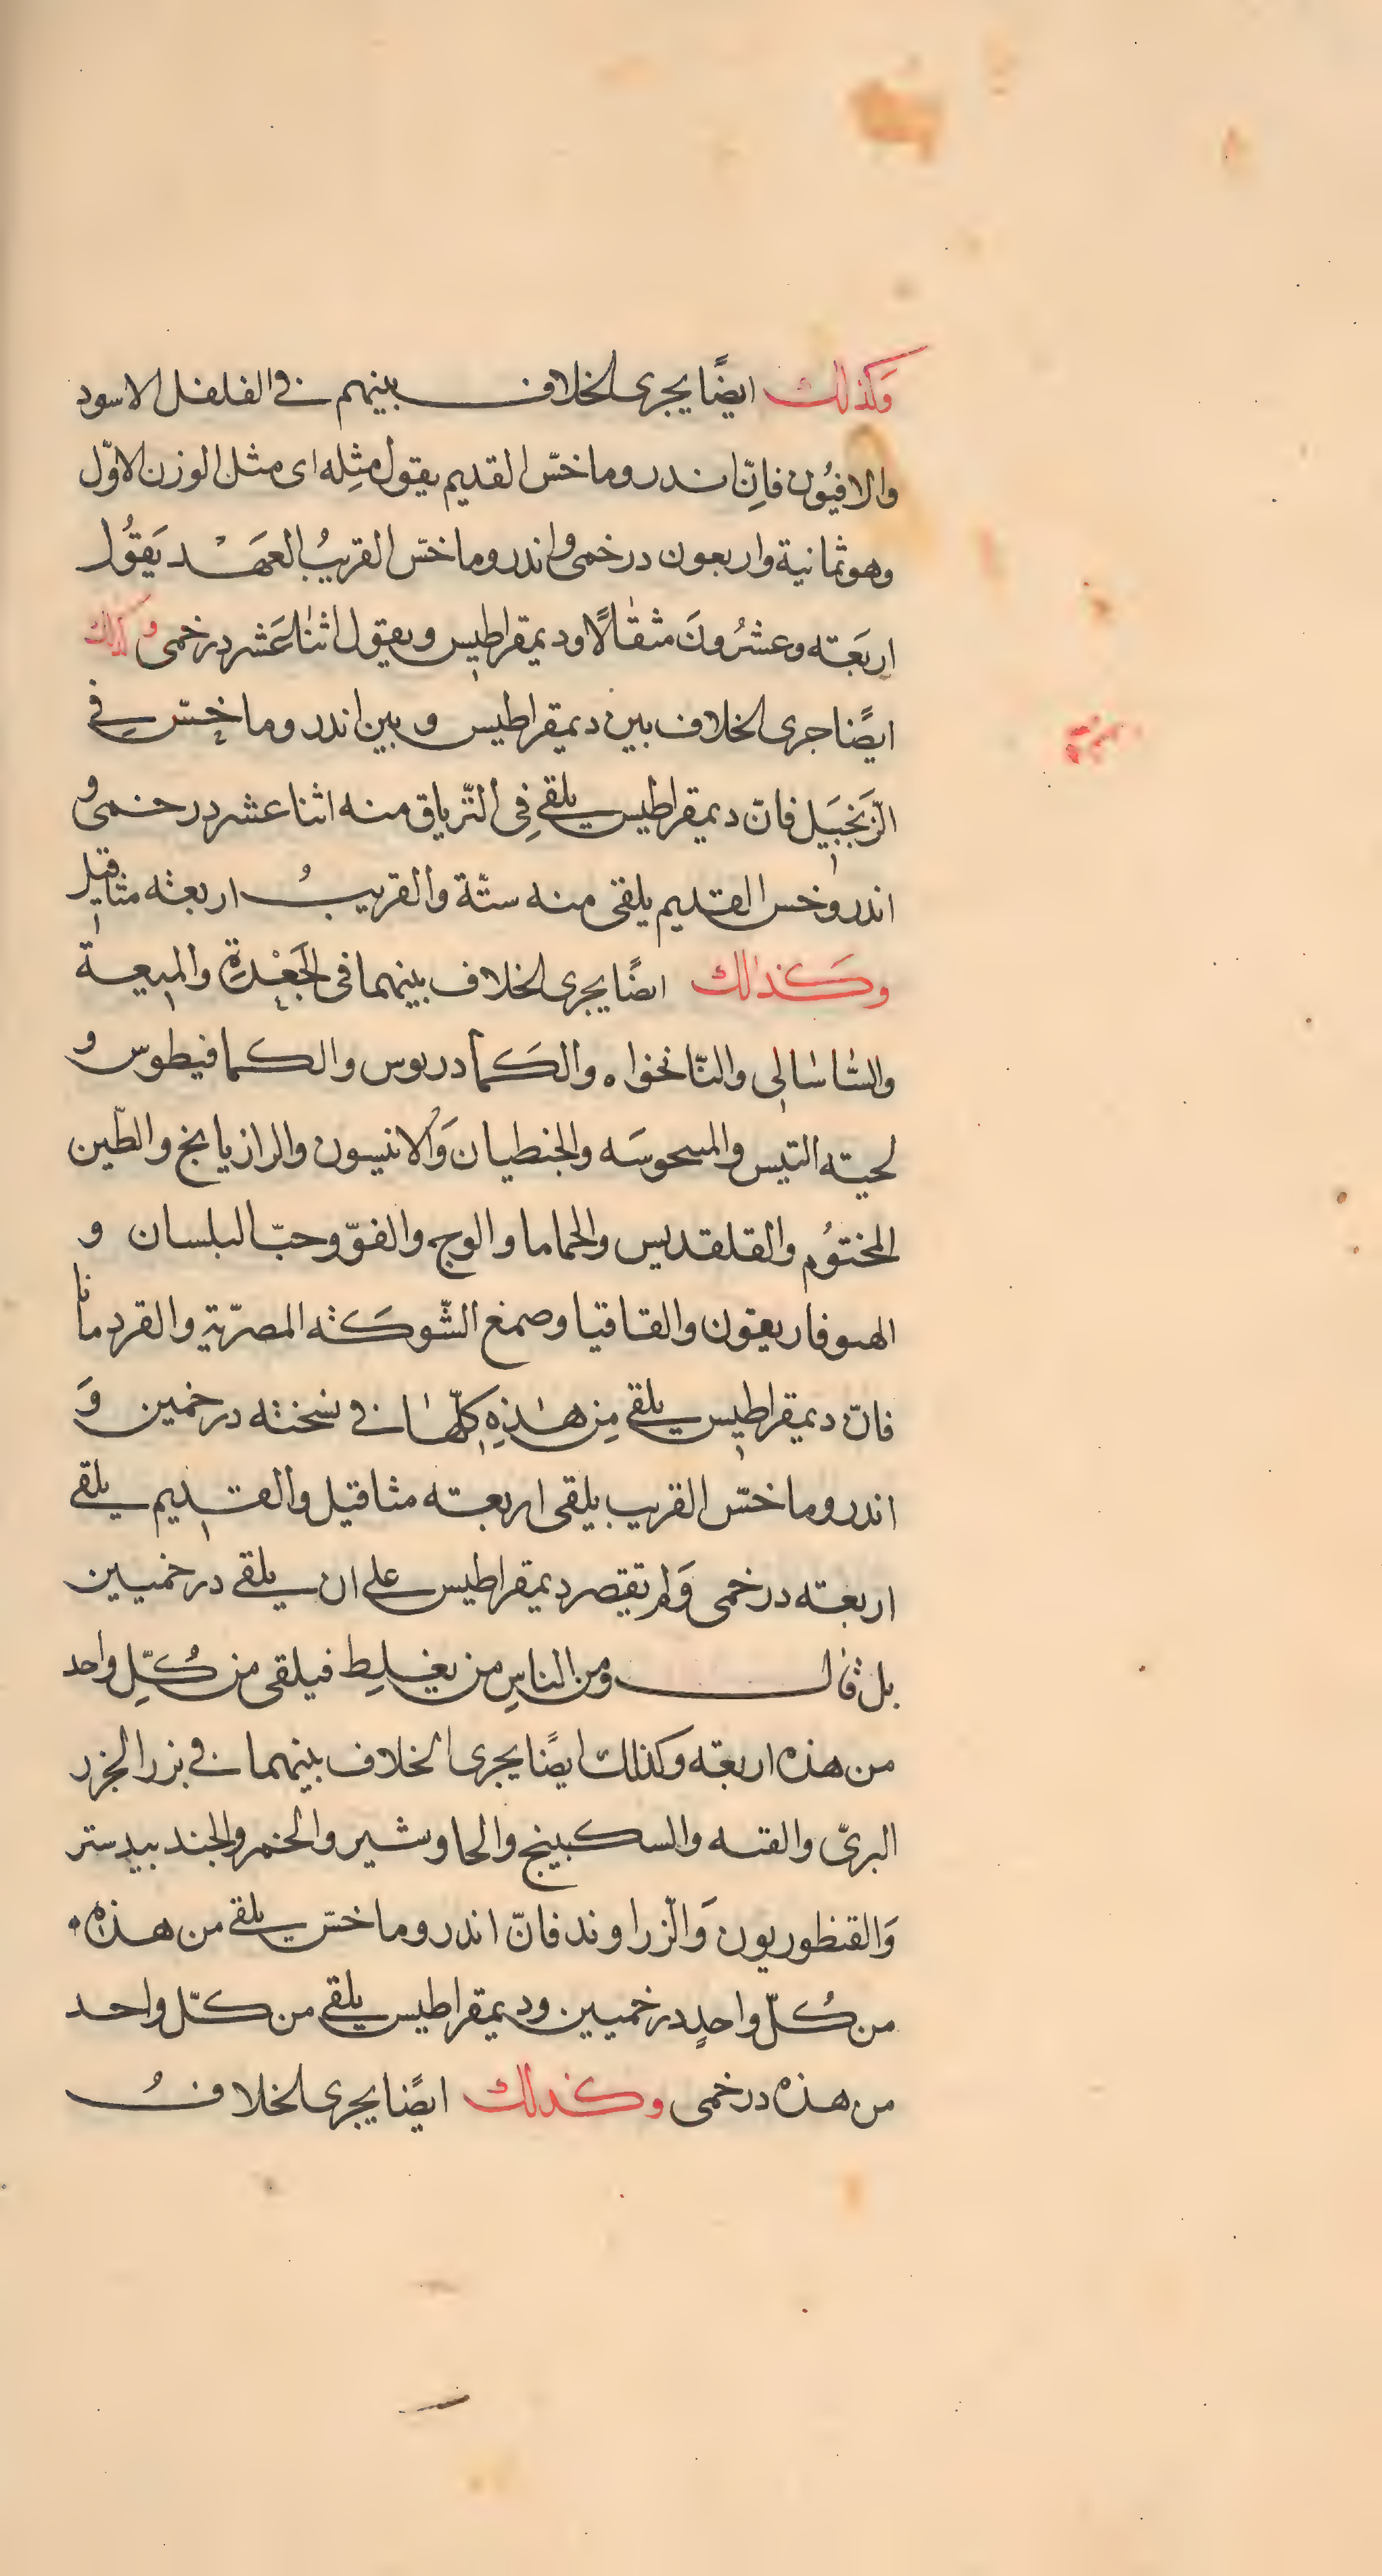 وَكذلك ايضًا يجرى الخلاف بينهم فى الفلفل الاسود
والافيُون فاِنّ اندروماخسّ القديم يقول مثِله اى مثل الوزن الاوّل
وهو ثمانية واربعون درخمى واندروماخسّ القريبُ العَهْد يَقوُل
اربَعَته وعشرُونَ مثقٰالًا وديمقراطيس ويقول اثنٰا عَشر درخمى وكذلك
ايضًا جرى الخلاف بين ديمقراطيس وبين اندروماخِسّ فى
الزّنجَبَيل فانّ ديمقراطيس يلقى فِى التّرياق منه اثنا عشر درخمى و
اندروخس القديم يلقى منه ستّة والقريبُ اربعته مثاقيل
وكَذٰلك ايضًا يجرى الخلاف بينهما فى الجَعْدِة والميعة
والسّٰاسٰالى والنّانخواه والكَمادريوس والكمافيطوس و
لحيته التيس والمىحوسَه والجنطيان وَالانيسون والرازيانج والطّين
المختوُم والقلقديس والحماما والوج والفوّ وحبّ البلسان و
الهىوفاريقون والقاقيا وصمغ الشّوكَته المصرّية والقردمانا
فانّ ديمقراطيس يلقى مِن هٰذِه كلّهٰا فى نسخته درخمين وَ
اندروماخسّ القريب يلقى اربعته مثاقيل والقديم يلقى
اربعته درخمى وَلم تقتصر ديمقراطيس على ان يلقى درخميين
بل قال ومن الناسِ من يغلِط فيلقى من كُلِّ واحد
من هذه اربعَته وكذلك ايضًا يجرى الخلاف بينهما فى بزر الجزر
البرىّ والقنه والسكبينج والجاوشير والخمر والجندبيدستر
وَالقنطوريون وَالزّراوند فانّ اندروماخسّ يلقى من هذه
من كُلّ واحدٍ درخميين وديمقراطيس يلقى من كلّ واحد
من هذه درخمى وكذلك ايضًا يجرى الخلافُ